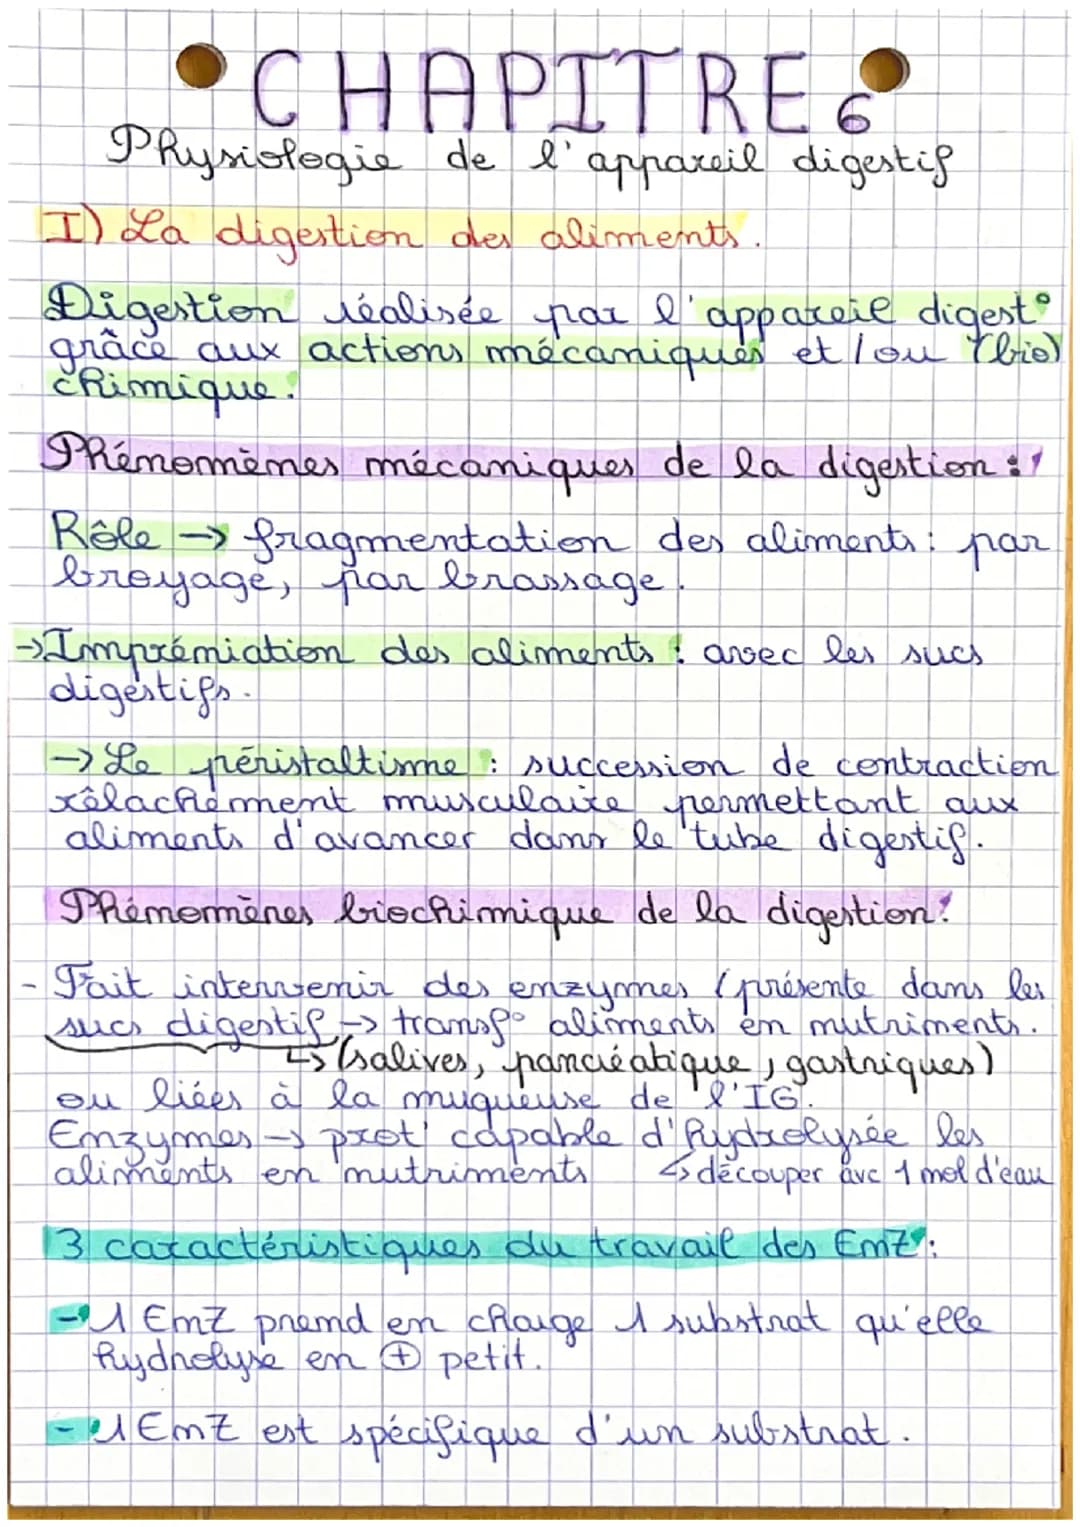 CHAPITRE 6
Physiologie de l'appareil digestif
I) La digestion des aliments.
Digestion réalisée par l'appareil digest°
grâce aux actions mécaniques et/ou (bio)
chimique.
Phénomènes mécaniques de la digestion :
Rôle → fragmentation des aliments : par
broyage, par brassage.
→ Imprémiation des aliments : avec les sucs
digestifs.
→ Le péristaltisme : succession de contraction
rêlachement musculaire permettant aux
aliments d'avancer dans le tube digestif.
Phénomènes biochimique de la digestion :
- Fait intervenir des enzymes (présente dans les
sucs digestif → transf° aliments en nutriments.
↳ (salives, pancréatique, gastriques)
ou liées à la muqueuse de l'IG.
Enzymes → prot' capable d'hydrolysée les
aliments en nutriments ↳ découper avc 1 mol d'eau
3 caractéristiques du travail des EmZ :
- 1 EmZ prend en charge 1 substrat qu'elle
hydrolyse en ⊕ petit.
- 1 EmZ est spécifique d'un substrat.